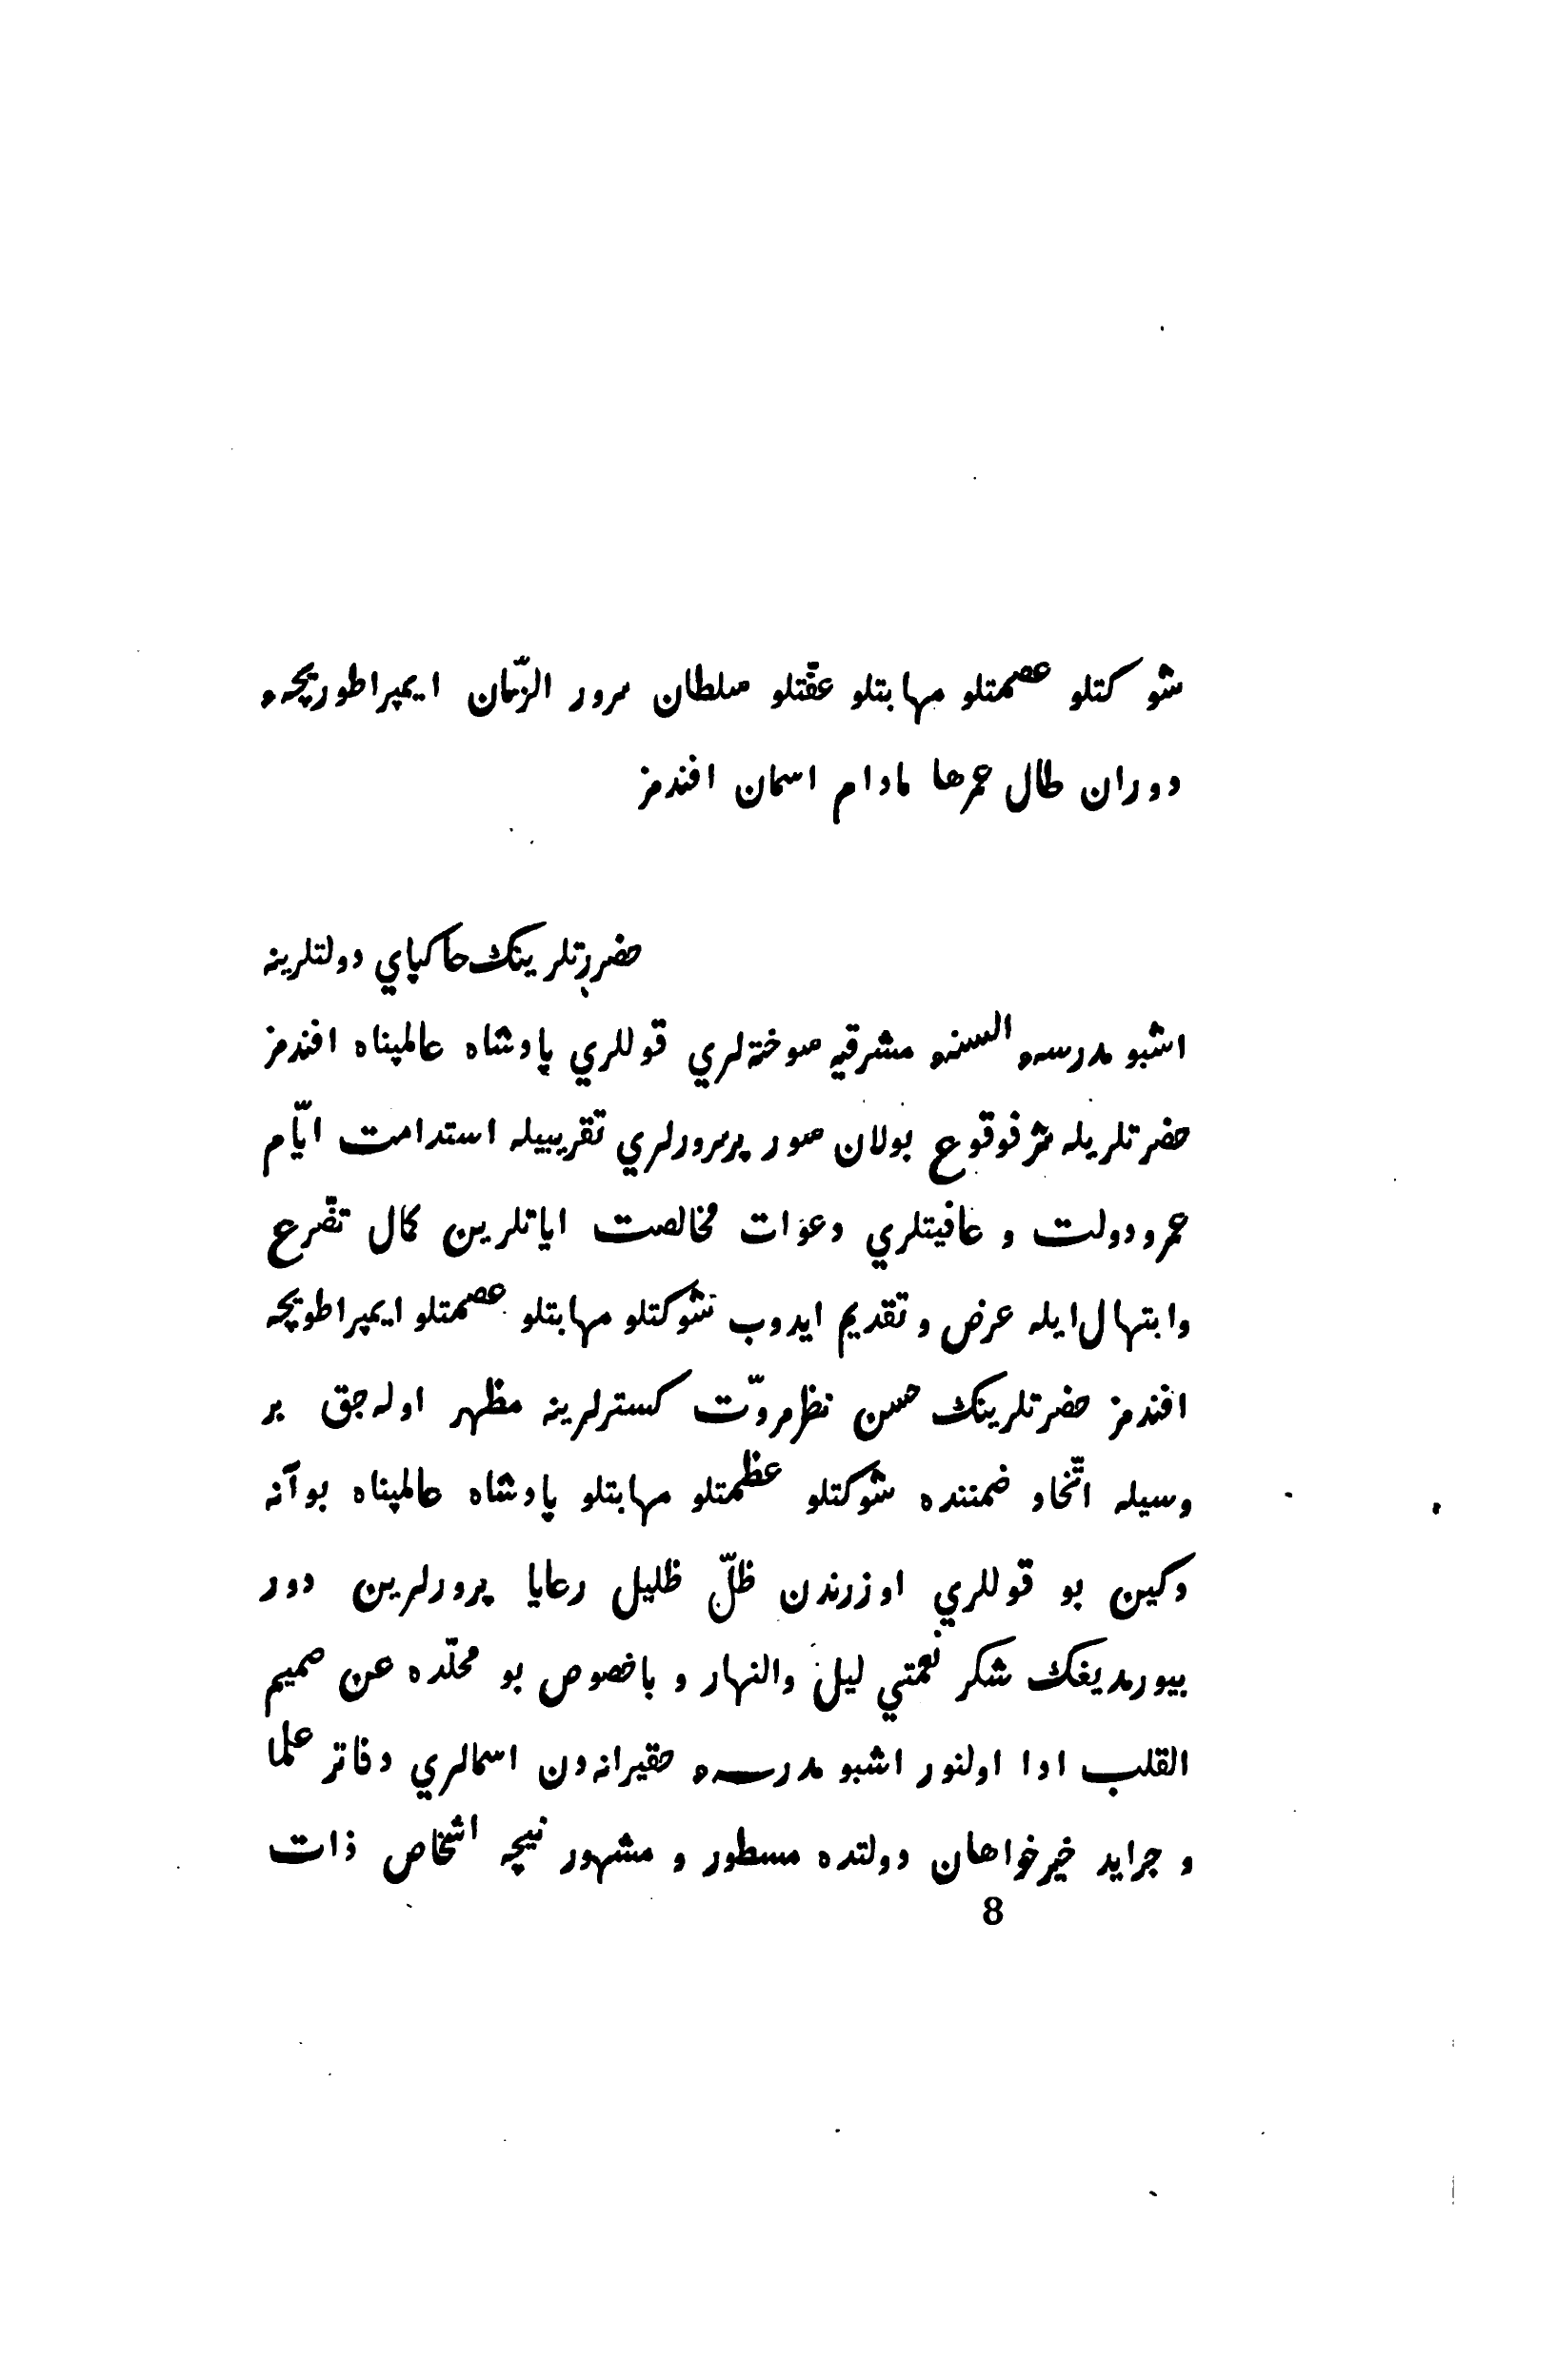 شوكتلو عصمتلو مهابتلو عفّتلو سلطان سرور الزّمان ايمپراطوريچهء
دوران طال عمرها مادام اسمان افندمز
حضرتلرينك خاكپاي دولتلرينه
اشبو مدرسهء السنهء مشرقيه سوختهلري قوللري پادشاه عالمپناه افندمز
حضرتلريله شرفوقوع بولان سور پرسرورلري تقريبيله استدامت ايّام
عمر و دولت و عافيتلري دعوات مخالصت اياتلرين كمال تضرع
وابتهال ايله عرض و تقديم ايدوب شوكتلو مهابتلو عصمتلو ايمپراطويچه
افندمز حضرتلرينك حسن نظر مروّت كسترلرينه مظهر اولهجق بر
وسيله اتّخاد ضمننده شوكتلو عظمتلو مهابتلو پادشاه عالمپناه بوآنه
دكين بو قوللري اوزرندن ظلّ ظليل رعايا پرورلرين دور
بيورمديغك شكر نعمتي ليل والنهار و باخصوص بو محلّده عن صميم
القلب ادا اولنور اشبو مدرسهء حقيرانهدن اسمالري دفاتر علما
و جرايد خيرخواهان دولتده مسطور و مشهور نيچه اشخاص ذات
8